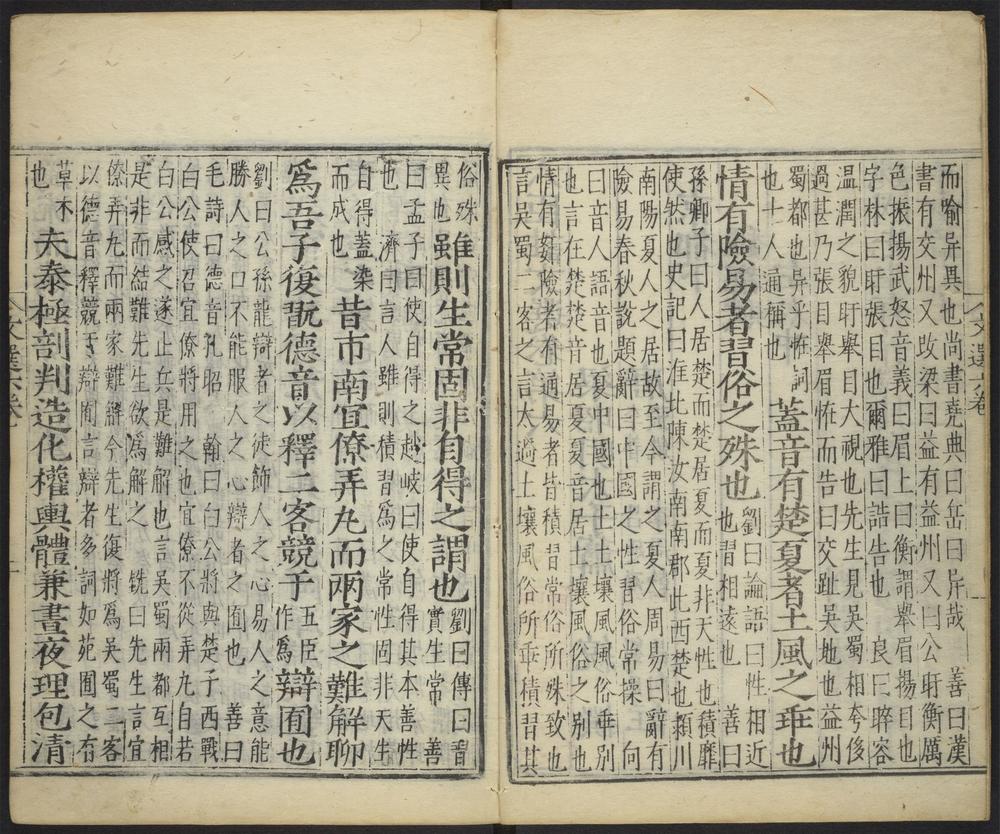 文選六卷
而喻异異也尚書堯典曰岳曰异哉　善曰漢
書有交州又攺梁曰益有益州又曰公盱衡厲
色振揚武怒音義曰眉上曰衡謂舉眉揚目也
字林曰盱張目也爾雅曰誥告也　良曰睟容
温潤之貌盱舉目大視也先生見吳蜀相夸侈
過甚乃張目舉眉恠而告曰交趾吳地也益州
蜀都也异乎恠詞
也士人通稱也
蓋音有楚夏者土風之乖也
情有險易者習俗之殊也
劉曰論語曰性相近
也習相遠也　善曰
孫卿子曰人居楚而楚居夏而夏非天性也積靡
使然也史記曰淮北陳汝南南郡此西楚也潁川
南陽夏人之居故至今謂之夏人周易曰辭有
險易春秋說題辭曰中國之性習俗常操　向
曰音人語音也夏中國也土土壤風風俗乖別
也言在楚楚音居夏夏音居土壤風俗之別也
情有姧險者有通易者皆積習常俗所殊致也
言吳蜀二客之言太過土壤風俗所乖積習其
俗殊
異也
雖則生常固非自得之謂也
劉曰傳曰習
實生常　善
曰孟子曰使自得之趙岐曰使自得其本善性
也　濟曰言人雖則積習爲之常性固非天生
自得蓋染
而成也
昔市南宜僚弄丸而兩家之難解聊
爲吾子復翫德音以釋二客競于
五臣
作爲
辯囿也
劉曰公孫龍辯者之徒飾人之心易人之意能
勝人之口不能服人之心辯者之囿也　善曰
毛詩曰德音孔昭　翰曰白公將與楚子西戰
白公使召宜僚將用之也宜僚不從弄九自若
白公感之遂止兵是難解也言吳蜀兩都互相
是非而結難先生欲爲解之　銑曰先生言宜
僚弄九而兩家難解今先生復將爲吳蜀二客
以德音釋競于辯囿言辯者多詞如苑囿之有
草木
也
夫泰極剖判造化權輿體兼晝夜理包清
文選六卷